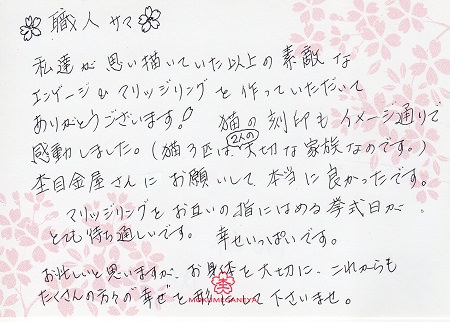 職人サマ
私達が思い描いていた以上の素敵な
エンゲージ&マリッジリングを作っていただいて
ありがとうございます! 猫の刻印もイメージ通りで
感動しました。(猫3匹は、2人の大切な家族なのです。)
杢目金屋さんにお願いして、本当に良かったです。
マリッジリングをお互いの指にはめる挙式日が、
とても待ち遠しいです。 幸せいっぱいです。
お忙しいと思いますが、お身体を大切に、これからも
たくさんの方々の幸せを形にして下さいませ。
MOKUMEGANEYA